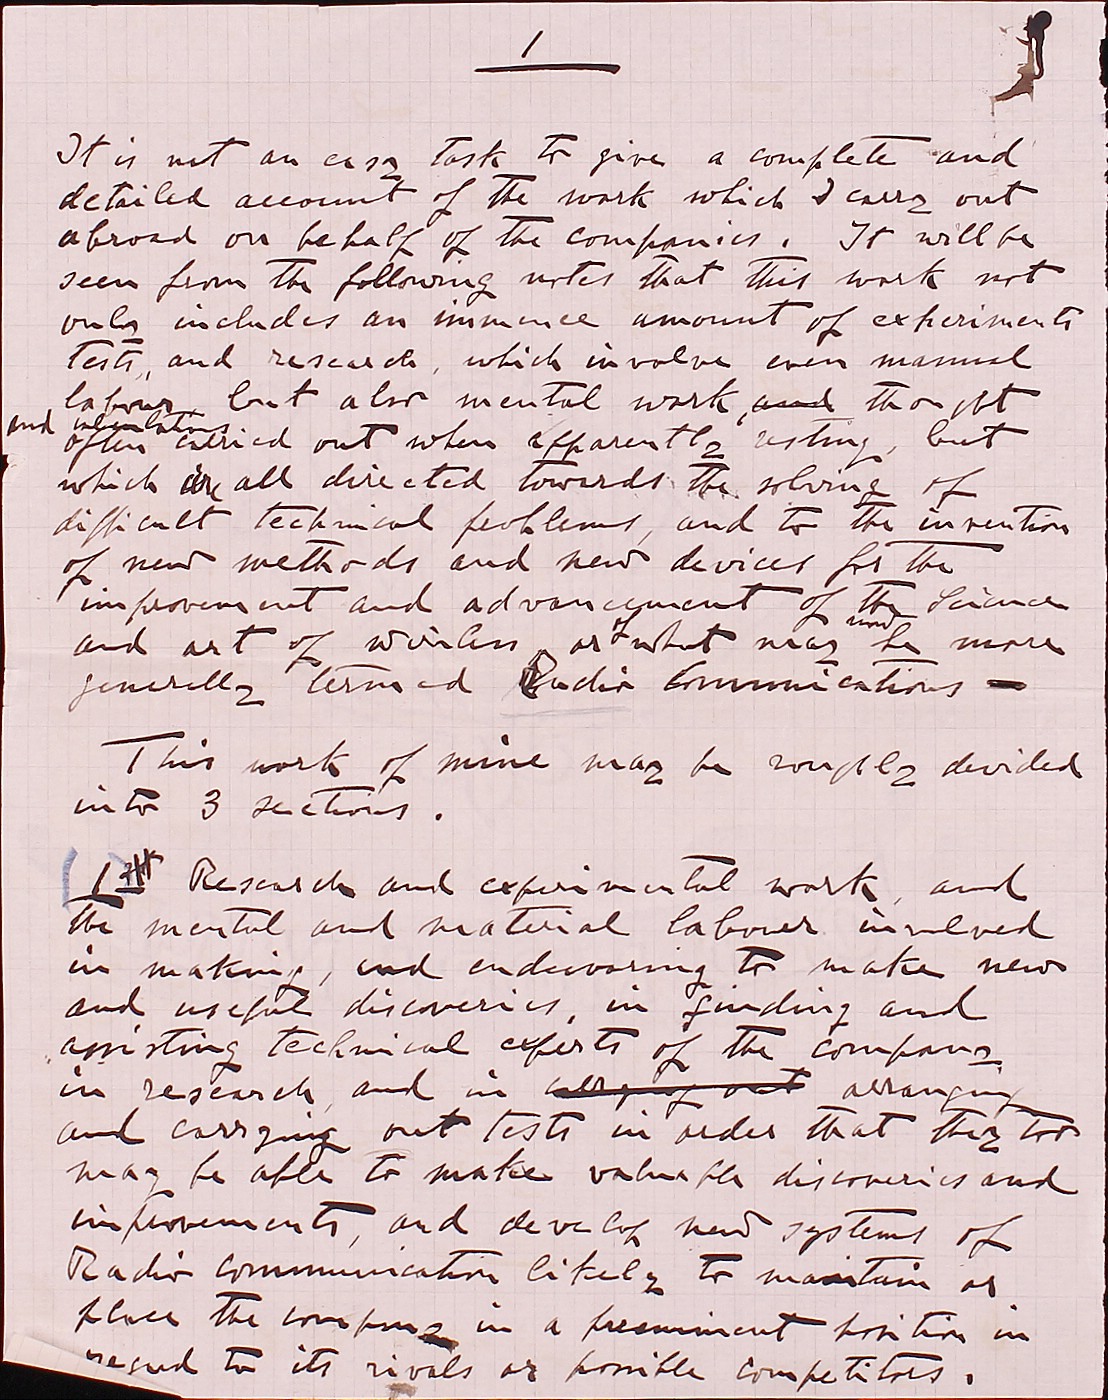 1
It is not an easy task to give a complete and
detailed account of the work which I carry out
abroad on behalf of the companies. It will be
seen from the following notes that this work not
only includes an immence amount of experiments
tests, and research, which involve even manual
labour, but also mental work, and thought
and calculations
often carried out when apparently resting, but
which are all directed towards the solving of
difficult technical problems, and to the invention
of new methods and new devices for the
improvement and advancement of the Science
and art of wireless, or of what may now be more
generally termed Radio Communications —
This work of mine may be roughly devided
into 3 sections.
1st Research and experimental work, and
the mental and material labour involved
in making, and endeavoring to make new
and useful discoveries, in guiding and
assisting technical experts of the company
in research, and in carrying out arranging
and carrying out tests in order that they too
may be able to make valuable discoveries and
improvements, and develop new systems of
Radio communication likely to maintain or
place the company in a preeminent position in
regard to its rivals or possible competitors.